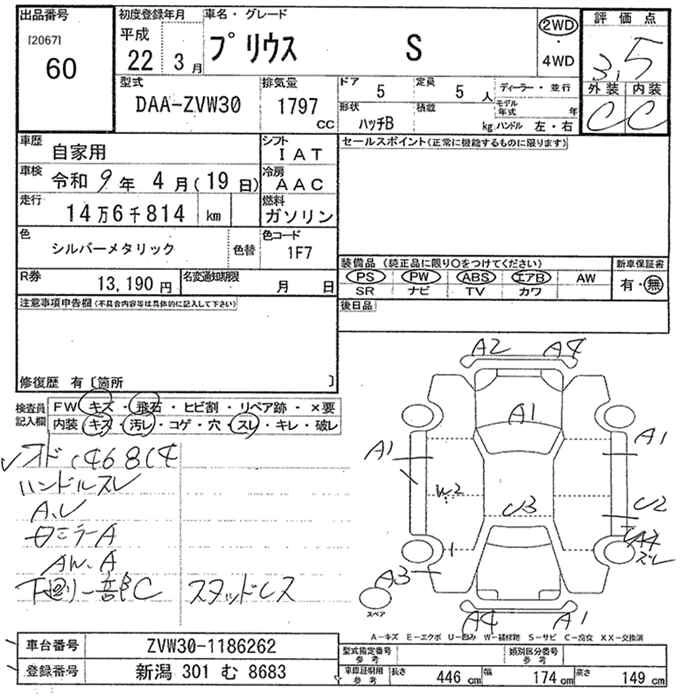 出品番号
[2067]
60
初度登録年月
平成
22 3月
車名・グレード
プリウス S
2WD
・
4WD
評価点
3.5
外装 内装
C C
型式
DAA-ZVW30
排気量
1797 CC
ドア 5
定員 5 人
ディーラー・並行
形状 ハッチB
積載 kg
モデル年式 年
ハンドル 左・右
車歴
自家用
シフト
IAT
車検 令和 9年 4月(19日)
冷房
AAC
走行
14万6千814 km
燃料
ガソリン
色
シルバーメタリック
色替
色コード
1F7
R券
13,190円
名変通知期限
月 日
セールスポイント(正常に機能するものに限ります)
装備品(純正品に限り○をつけてください)
PS PW ABS エアB AW
SR ナビ TV カワ
新車保証書
有・無
後日品
注意事項申告欄(不具合内容等は具体的に記入して下さい)
修復歴 有〔箇所 〕
検査員記入欄
FW キズ・飛石・ヒビ割・リペア跡・×要
内装 キズ・汚レ・コゲ・穴・スレ・キレ・破レ
ハンドルスレ
下廻り一部C スタッドレス
A2 A4
A1
A1 A1
W2 U3 U2
A3
スレ
スペア
A4 A1
A-キズ E-エクボ U-凹み W-補修跡 S-サビ C-腐食 XX-交換済
車台番号 ZVW30-1186262
登録番号 新潟 301 む 8683
型式指定番号参考
類別区分番号参考
車庫証明用参考
長さ 446 cm 幅 174 cm 高さ 149 cm